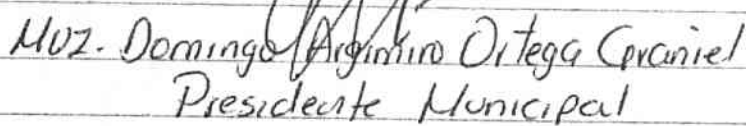 MVZ. Domingo Argimiro Ortega Graniel
Presidente Municipal